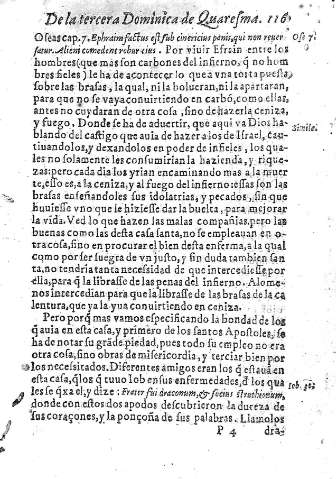 De la tercera Dominica de Quaresma. 116
Oseas cap. 7. Ephraim factus est sub cinericius panis, qui non reuer Ose 7.
satur. Alieni comederunt robur eius. Por viuir Efrain entre los
hombres (que mas son carbones del infierno, q̃ no hom
bres fieles) le ha de acontecer lo que a vna torta puesta
sobre las brasas, la qual, ni la bolueran, ni la apartaran,
para que no se vaya conuirtiendo en carbõ, como ellas,
antes no cuydaran de otra cosa, sino de hazerla ceniza,
y fuego. Donde se ha de aduertir, que aqui va Dios ha- Simile.
blando del castigo que auia de hazer a los de Israel, cau-
tiuandolos, y dexandolos en poder de infieles, los qua-
les no solamente les consumirian la hazienda, y rique-
zas: pero cada dia los yrian encaminando mas a la muer
te, esso es, a la ceniza, y al fuego del infierno: essas son las
brasas enseñandoles sus idolatrias, y pecados, sin que
huuiesse vno que le hiziesse dar la buelta, para mejorar
la vida. Ved lo que hazen las malas compañias, pero las
buenas como las desta casa santa, no se empleauan en o-
tra cosa, sino en procurar el bien desta enferma, a la qual
como por ser suegra de vn justo, y sin duda tambien san
ta, no tendria tanta necessidad de que intercediesse por
ella, para q̃ la librasse de las penas del infierno. Alome-
nos intercedian para que la librasse de las brasas de la ca
lentura, que ya la yua conuirtiendo en ceniza.
Pero porq̃ mas vamos especificando la bondad de los
q̃ auia en esta casa, y primero de los santos Apostoles, se
ha de notar su grãde piedad, pues todo su empleo no era
otra cosa, sino obras de misericordia, y terciar bien por
los necessitados. Diferentes amigos eran los q̃ estauã en
esta casa, q̃ los q̃ tuuo Iob en sus enfermedades, d̃ los qua
les se q̃xa el, y dize: Frater fui draconum, & socius struthionum, Iob. 30.
donde con estos dos apodos descubrieron la dureza de
sus coraçones, y la ponçoña de sus palabras. Llamolos
P 4 dra-